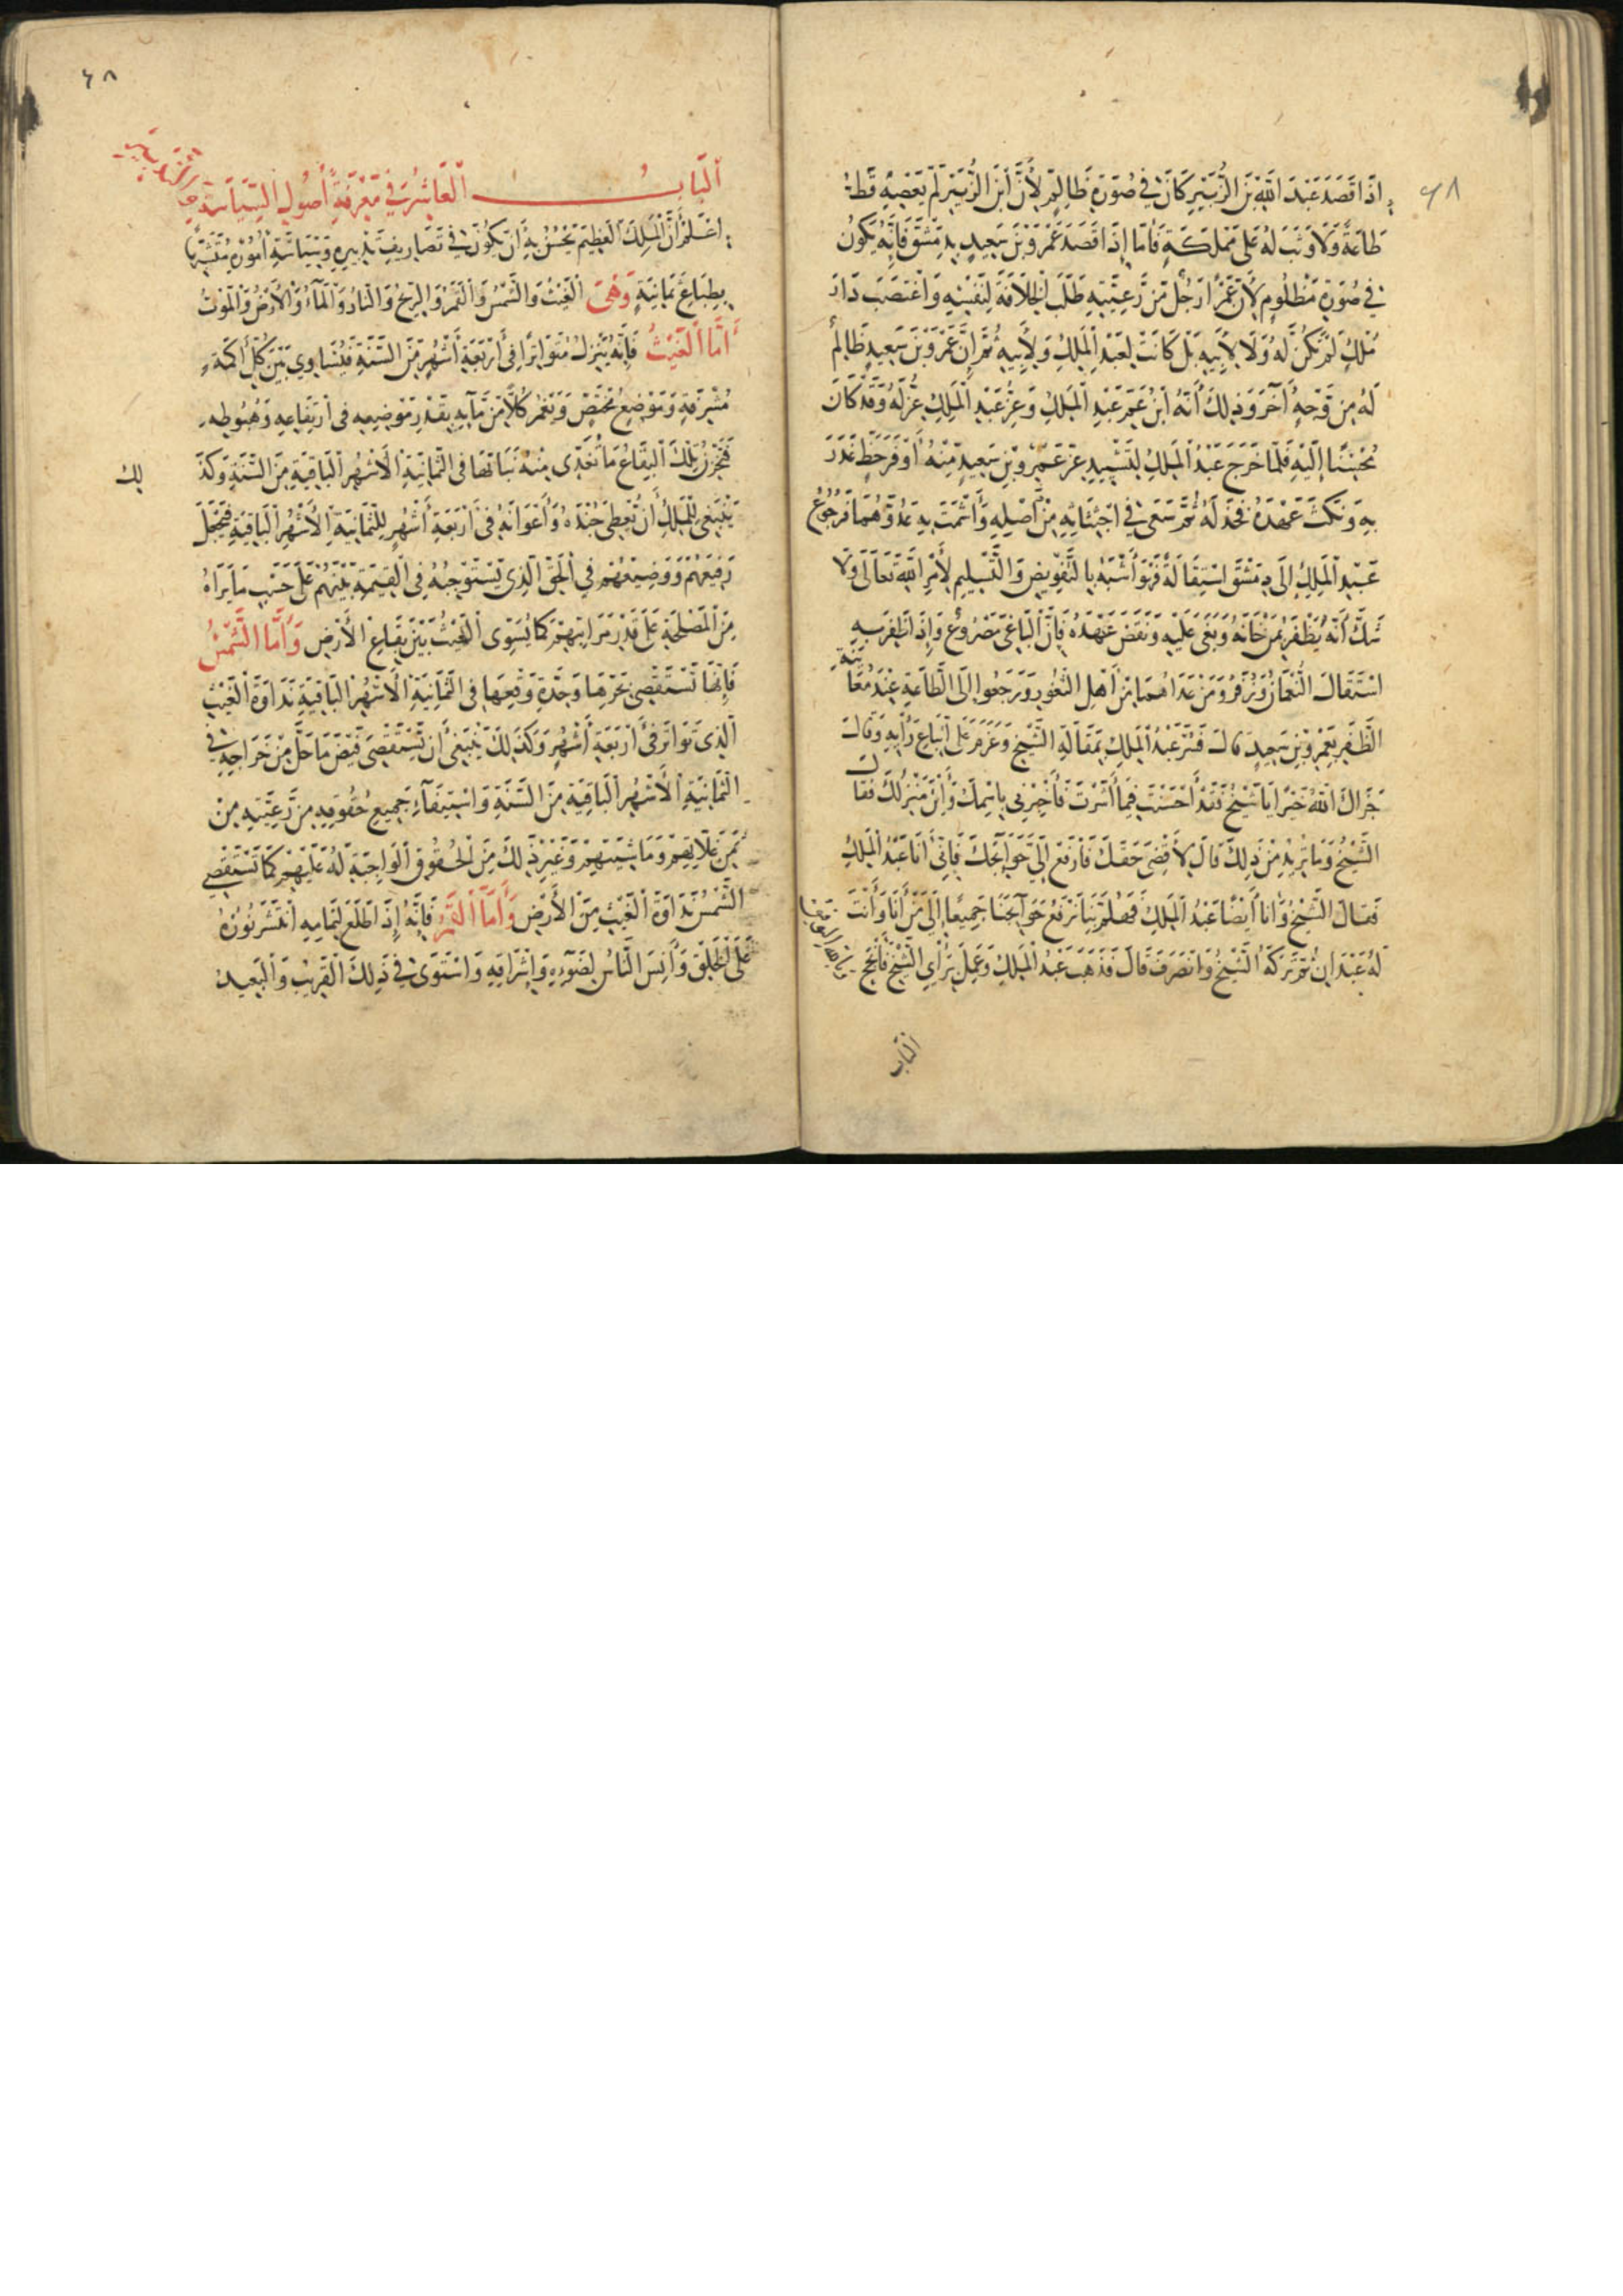 ٤٨
إذا قصد عبد الله بن الزبير كان في صورة ظالم لأن ابن الزبير لم يعصه قط
طاعة ولا وثب له على مملكة فأما إذا قصد عمرو بن سعيد بدمشق فإنه يكون
في صورة مظلوم لأن عمرا رجل من رعيته طلب الخلافة لنفسه واغتصب دار
ملك لم تكن له ولا لأبيه بل كانت لعبد الملك ولأبيه ثم إن عمرو بن سعيد ظالم
له من وجه آخر وذلك أنه ابن عم عبد الملك وعز عبد الملك عز له وقد كان
محسنا إليه فلما خرج عبد الملك عن عمرو بن سعيد منه أوفر حظ غدر
به ونكث عهده فخذله ثم سعى في اجتثاثه من أصله وأشمت به عدوهما فرجوع
عبد الملك إلى دمشق استقالة فهو أشبه بالتفويض والتسليم لأمر الله تعالى ولا
شك أنه يظفر بمن خانه وبغى عليه ونقض عهده فإن الباغي مصروع وإذا ظفر به
استقال النعمان وزفر ومن عداهما من أهل الثغور ورجعوا إلى الطاعة عند معاينة
الظفر بعمرو بن سعيد قال فسر عبد الملك بمقالة الشيخ وعزم على اتباع رأيه وقال
جزاك الله خيرا يا شيخ فقد أحسنت فيما أشرت فأخبرني باسمك وأين منزلك فقال
الشيخ وما تريد من ذلك قال لأقضي حقك فارفع إلي حوائجك فإني أنا عبد الملك
فقال الشيخ وأنا أيضا عبد الملك فهلم بنا نرفع حوائجنا جميعا إلى من أنا وأنت
له عبدان ثم تركه الشيخ وانصرف قال فذهب عبد الملك وعمل برأي الشيخ فأنجح
الباب
٤٨
الباب العاشر في معرفة أصول السياسة
اعلم أن الملك العظيم يحسن به أن يكون في تصاريف تدبيره وسياسة أموره متشبها
بطبائع ثمانية وهي الغيث والشمس والقمر والريح والنار والماء والأرض والموت
أما الغيث فإنه ينزل متواترا في أربعة أشهر من السنة فيساوي بين كل أكمة
مشرفة وموضع منخفض ويغمر كلا من مائه بقدر موضعه في ارتفاعه وهبوطه
فتحرز تلك البقاع ما تغذي منه نباتها في الثمانية الأشهر الباقية من السنة وكذلك
ينبغي للملك أن يعطي جنده وأعوانه في أربعة أشهر للثمانية الأشهر الباقية فيجعل
رفيعهم ووضيعهم في الحق الذي يستوجبه في القيمة بينهم على حسب ما يراه
من المصلحة على قدر مراتبهم كما يسوي الغيث بين بقاع الأرض وأما الشمس
فإنها تستقصي بحرها وحدة وقعها في الثمانية الأشهر الباقية نداوة الغيث
الذي تواتر في أربعة أشهر وكذلك ينبغي أن يستقصي قبض ما حل من خراجه في
الثمانية الأشهر الباقية من السنة واستيفاء جميع حقوقه من رعيته من
ثمن غلاتهم وماشيتهم وغير ذلك من الحقوق الواجبة له عليهم كما تستقصي
الشمس نداوة الغيث من الأرض وأما القمر فإنه إذا طلع لتمامه انتشر نوره
على الخلق وأنس الناس لضوءه وإشراقه واستوى في ذلك القريب والبعيد